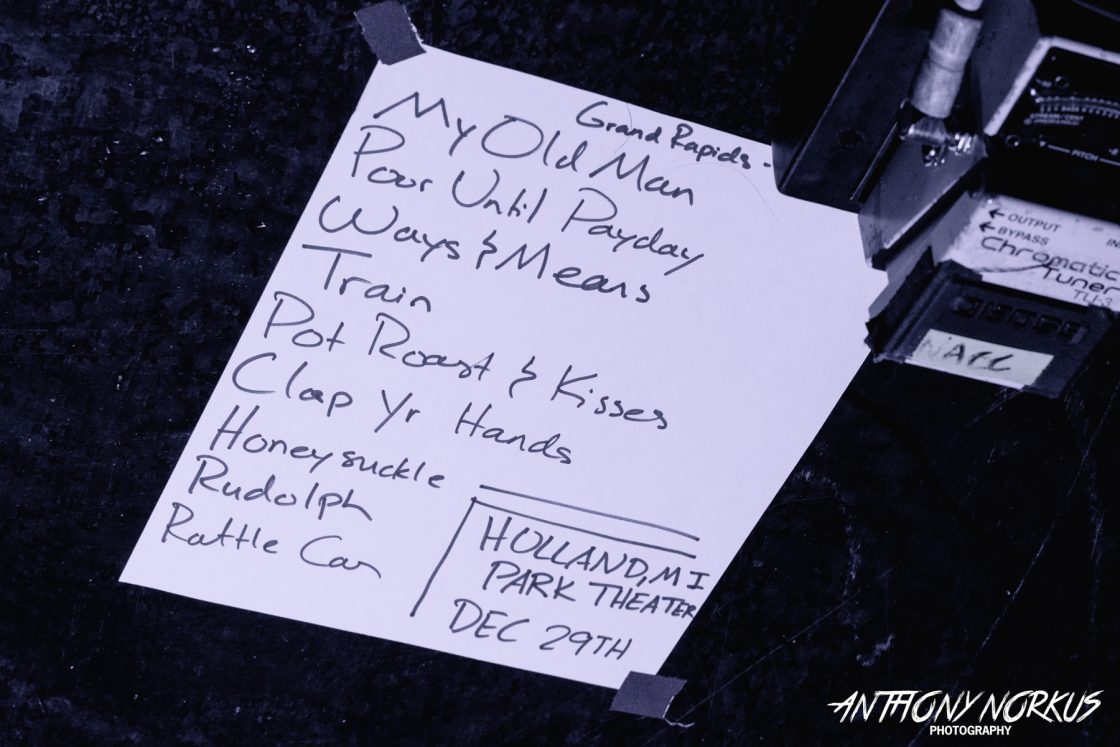 Grand Rapids -
My Old Man
Poor Until Payday
Ways & Means
Train
Pot Roast & Kisses
Clap Yr Hands
Honeysuckle
Rudolph
Rattle Can
HOLLAND, MI
PARK THEATER
DEC 29TH
PITCH
←OUTPUT
←BYPASS
Chromatic
Tuner
TU-3
ANTHONY NORKUS
PHOTOGRAPHY